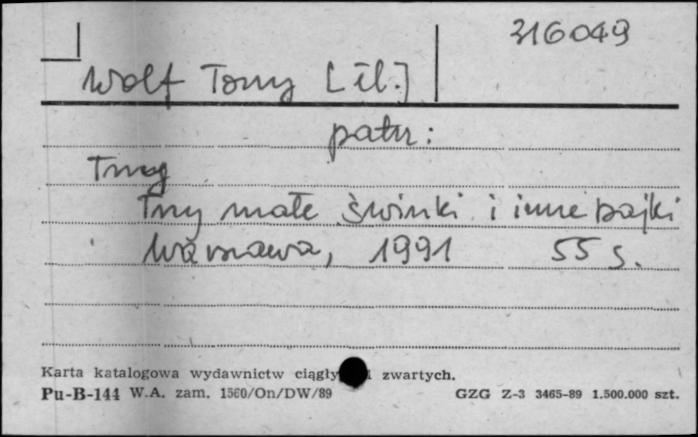 316049
Wolf Tony [il.]
patrz:
Trzy
Trzy małe świnki i inne bajki
Warszawa, 1991 55 s.
Karta katalogowa wydawnictw ciągły i zwartych.
Pu-B-144 W.A. zam. 1560/On/DW/89 GZG Z-3 3465-89 1.500.000 szt.